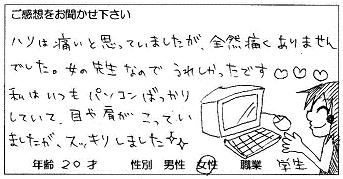 ご感想をお聞かせ下さい
ハリは痛いと思っていましたが、全然痛くありません
でした。女の先生なので うれしかったです♡♡♡
私はいつもパソコンばっかり
していて、目や肩がこってい
ましたが、スッキリしました☆☆
年齢 20 才 性別 男性 女性 職業 学生